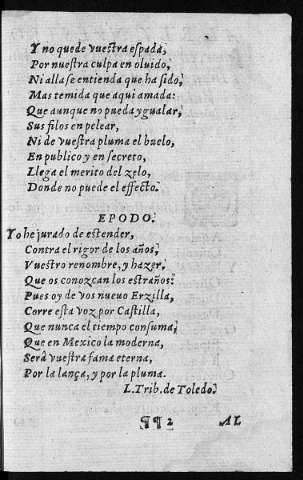 Y no quede vuestra espada,
Por nuestra culpa en oluido,
Ni alla se entienda que ha sido,
Mas temida que aqui amada:
Que aunque no pueda ygualar,
Sus filos en pelear,
Ni de vuestra pluma el buelo,
En publico y en secreto,
Llega el merito del zelo,
Donde no puede el effecto.
EPODO.
Yo he jurado de estender,
Contra el rigor de los años,
Vuestro renombre, y hazer,
Que os conozcan los estraños:
Pues oy de vos nueuo Erzilla,
Corre esta voz por Castilla,
Que nunca el tiempo consuma,
Que en Mexico la moderna,
Serà vuestra fama eterna,
Por la lança, y por la pluma.
L. Trib. de Toledo.
¶¶ 2 AL